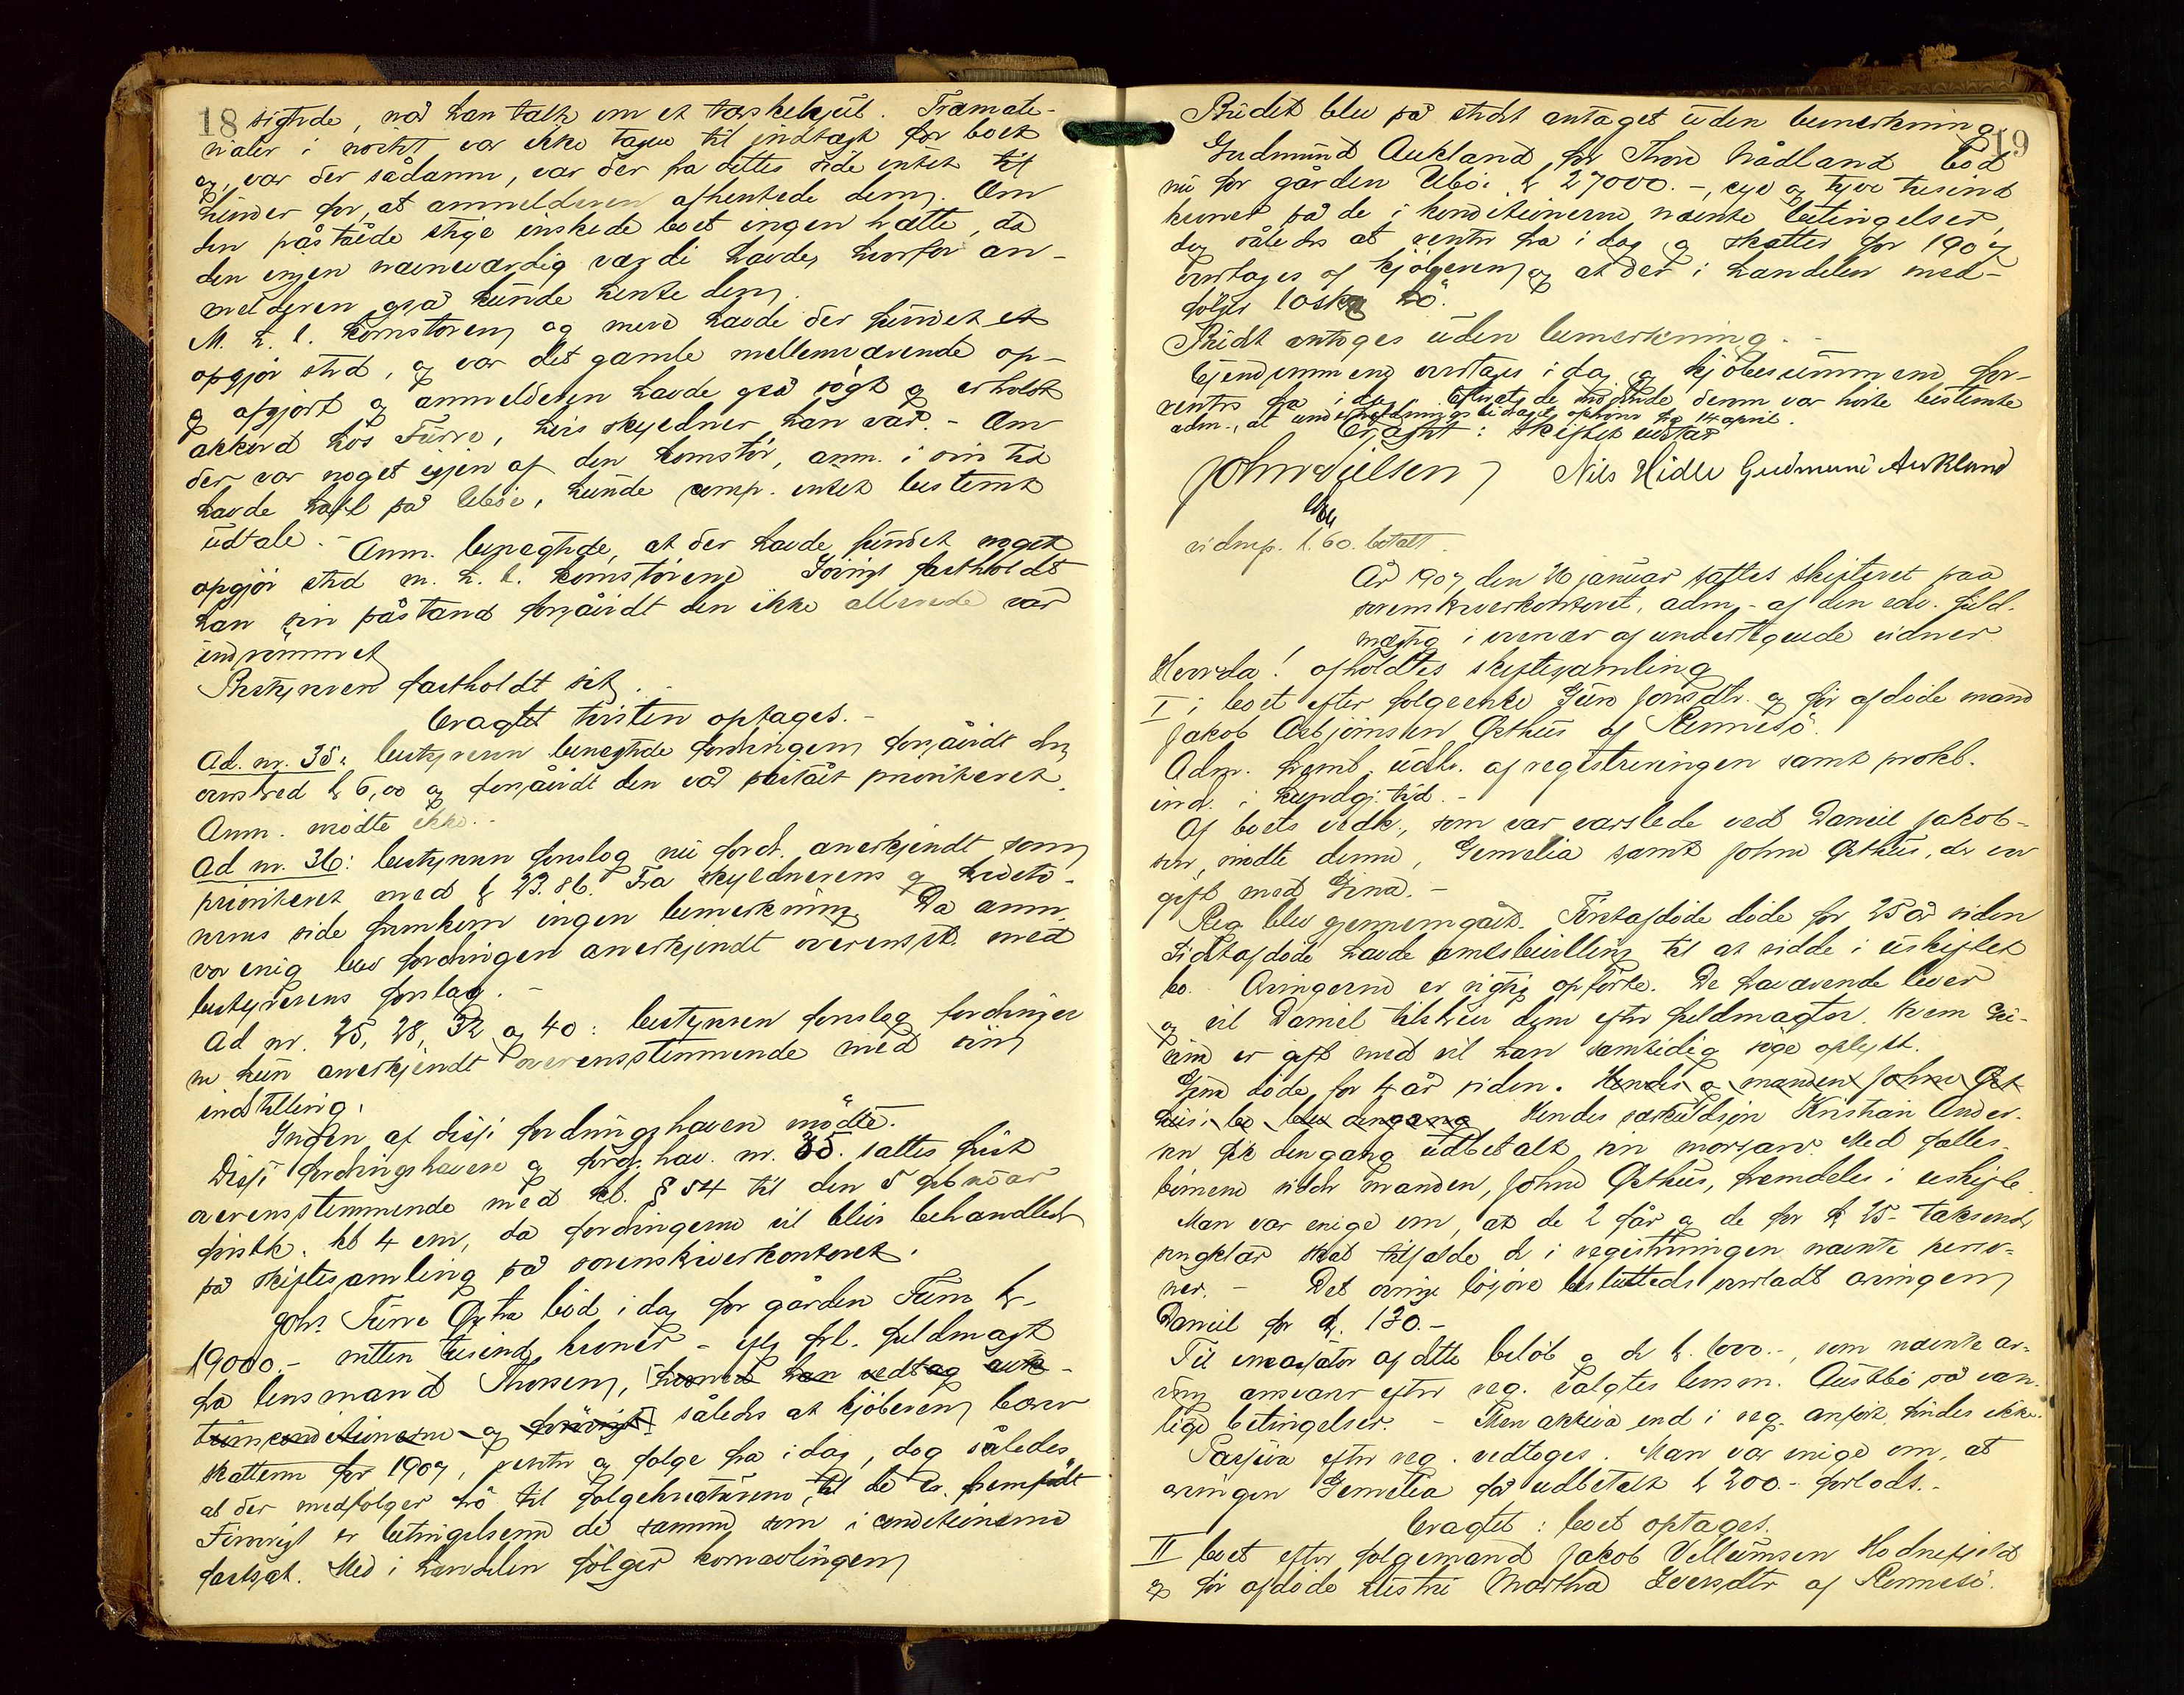 18
sigtede, når han talte om et tærskehjul. Tramate-
rialer i nöstet var ikke tagne til indtægt for boet
og, var der sådanne, var der fra dettes side intet til
hinder for, at anmelderen afhentede dem. Om
den påståede stige önskede boet ingen hätte, da
den ingen nævneværdig værdi havde, hvorfor an-
melderen også kunde hente den.
M. h. t. komstören og mere havde der fundet et
opgjör sted, og var det gamle mellemværende op-
og afgjort og anmelderen havde også sögt og erholdt
akkord hos Furre, hvis skyldner han var. - Om
der var noget igjen af den komstör, anm. i sin tid
havde havt på Uböe, kunde comp. intet bestemt
udtale. - Anm. benegtede, at der havde fundet noget
opgjör sted m. h. t. komstörene Iövrigt fastholdt
han sin påstand forsåvidt den ikke allerede var
indrömmet
Bestyreren fastholdt sit.
Eragtet tvisten optages. -
Ad. nr. 35: bestyreren benegtede fordringen forsåvidt den
overskred k 6,00 og forsåvidt den var påstået prioriteret.
Anm. mödte ikke. -
Ad nr. 36: bestyreren foreslog nu fordr. anerkjendt som
prioriteret med k 23.86. Fra skyldnerens og kredito-
rernes side fremkom ingen bemerkning Da anm.
var enig blev fordringen anerkjendt overensst. med
bestyrerens forslag. -
Ad nr. 25, 28, 32 og 40: bestyreren foreslog fordringer
ne kun anerkjendt overensstemmende med sin
indstilling.
Ingen af disse fordringshavere mödte.
Disse fordringshavere og fordr. hav. nr. 35. sattes frist
overensstemmende med kl. § 54 til den 5 februar
förstk. kl 4 em, da fordringerne vil blive behandlet
på skiftesamling på sorenskriverkontoret.
Johs Furre Östre böd i dag for gården Furre kr.
19000.- nitten tusind kroner - efter frl. fuldmagt
fra lensmand Thorsen, hvormed han vedtog auk-
tionsconditionerne og forövrigt således at kjöberen bærer
skatterne for 1907, renter og folge fra i dag, dog således
at der medfolger hö til folgekreaturene, til de er fremfödt
Forövrigt er betingelserne de samme som i conditionerne
fastsat. Med i handelen fölger kornavlingen
19
Budet blev på stedet antaget uden bemerkning
Gudmund Aukland for Thore Nådland böd
nu for gården Uböe k 27000.-, syv og tyve tusind
kroner på de i konditionerne nævnte betingelser,
dog således at renter fra i dag og skatter for 1907
overtages af kjöperen og at der i handelen med-
fölger löskra hö.
Budet antoges uden bemerkning.
Eiendommene overtages i dag og kjöbesummene for-
rentes fra i dag. Efterat de mödende derom var hörte bestemte
adm., at underholdningsbidraget ophörer fra 14 april.
Eragtet: skiftet udstår
John Nielsen Nils Hidle Gudmund Aukland
vidnep. 1.60. betalt.
År 1907 den 26 januar sattes skifteret paa
sorenskriverkontoret, adm. af den edsv. fuld-
mægtig i overvær af undertegnede vidner
Hvorda! afholdtes skiftesamling
I i boet efter folgeenke Guro Jonsdtr. og för afdöde mand
Jakob Asbjörnsen Östhus af Rennesö.
Adm. fremb. udskr. af registreringen samt prokl.
ind. i kundgj. tid. -
Af boets vedk., som var varslede ved Daniel Jakob-
sen, mödte denne, Gemelia samt John Östhus, der var
gift med Gina. -
Reg. blev gjennemgået. Förstafdöde döde for 25 år siden
Sidstafdöde havde amtsbevilling til at sidde i uskiftet
bo. Arvingerne er rigtig opförte. De fraværende lever
og vil Daniel tilskrive dem efter fuldmagter. Hvem Gu-
rine er gift med vil han samtidig söge oplyst.
Gina döde for 4 år siden. Hendes og manden John Öst
hus i bo blev dengang Hendes særkuldsön Kristian Ander-
sen fik dengang udbetalt sin morsarv. Med fælles-
börnene sidder manden, John Östhus, fremdeles i uskifte.
Man var enige om, at de 2 får og de for k 25 - takserede
sengklær skal tilfalde de i registreringen nævnte perso-
ner. - Det övrige lösöre besluttedes overladt arvingen
Daniel for k. 130.-
Til incassator af dette belöb og de k. 600.-, som nævnte ar-
ving ansvarer efter reg. valgtes lensm. Austbö på van-
lige betingelser. - Flere aktiva end i reg. anfört findes ikke.
Passiva efter reg. vedtoges. Man var enige om, at
arvingen Gemelia får udbetalt k 200.- forlods. -
Eragtet: boet optages.
II boet efter folgemand Jakob Villumsen Hodnefjeld
og för afdöde hustru Martha Iversdtr af Rennesö.